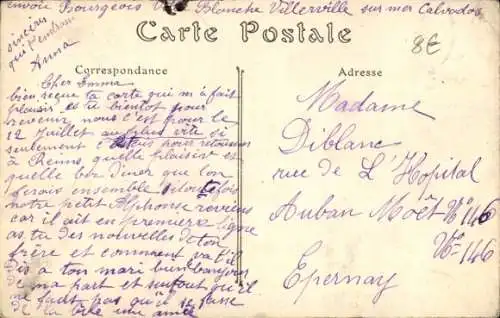 envoi Bourgeois Villa Blanche Villerville sur mer Calvados
sincère
qui
Anna
Carte Postale
8€
Correspondance
Adresse
Cher Emma
bien reçue ta carte qui m'a fait
plaisir es tu bientot pour
revenir nous c'est pour le
12 Juillet au plus vite si
seulement étais pour
à Reims, quelle plaisir et
quelle bon diner que l'on
ferais ensemble si toutefois
notre petit Alphonse reviens
car il ait en première ligne
as tu des nouvelles de ton
frère et comment va t'il
Dis à ton mari bien bonjour
de ma part et surtout qu'il
ne fadt pas qu'il se
de la une amie
Madame
Diblanc
rue de L'Hopital
Auban Moët No 146
No 146
Epernay